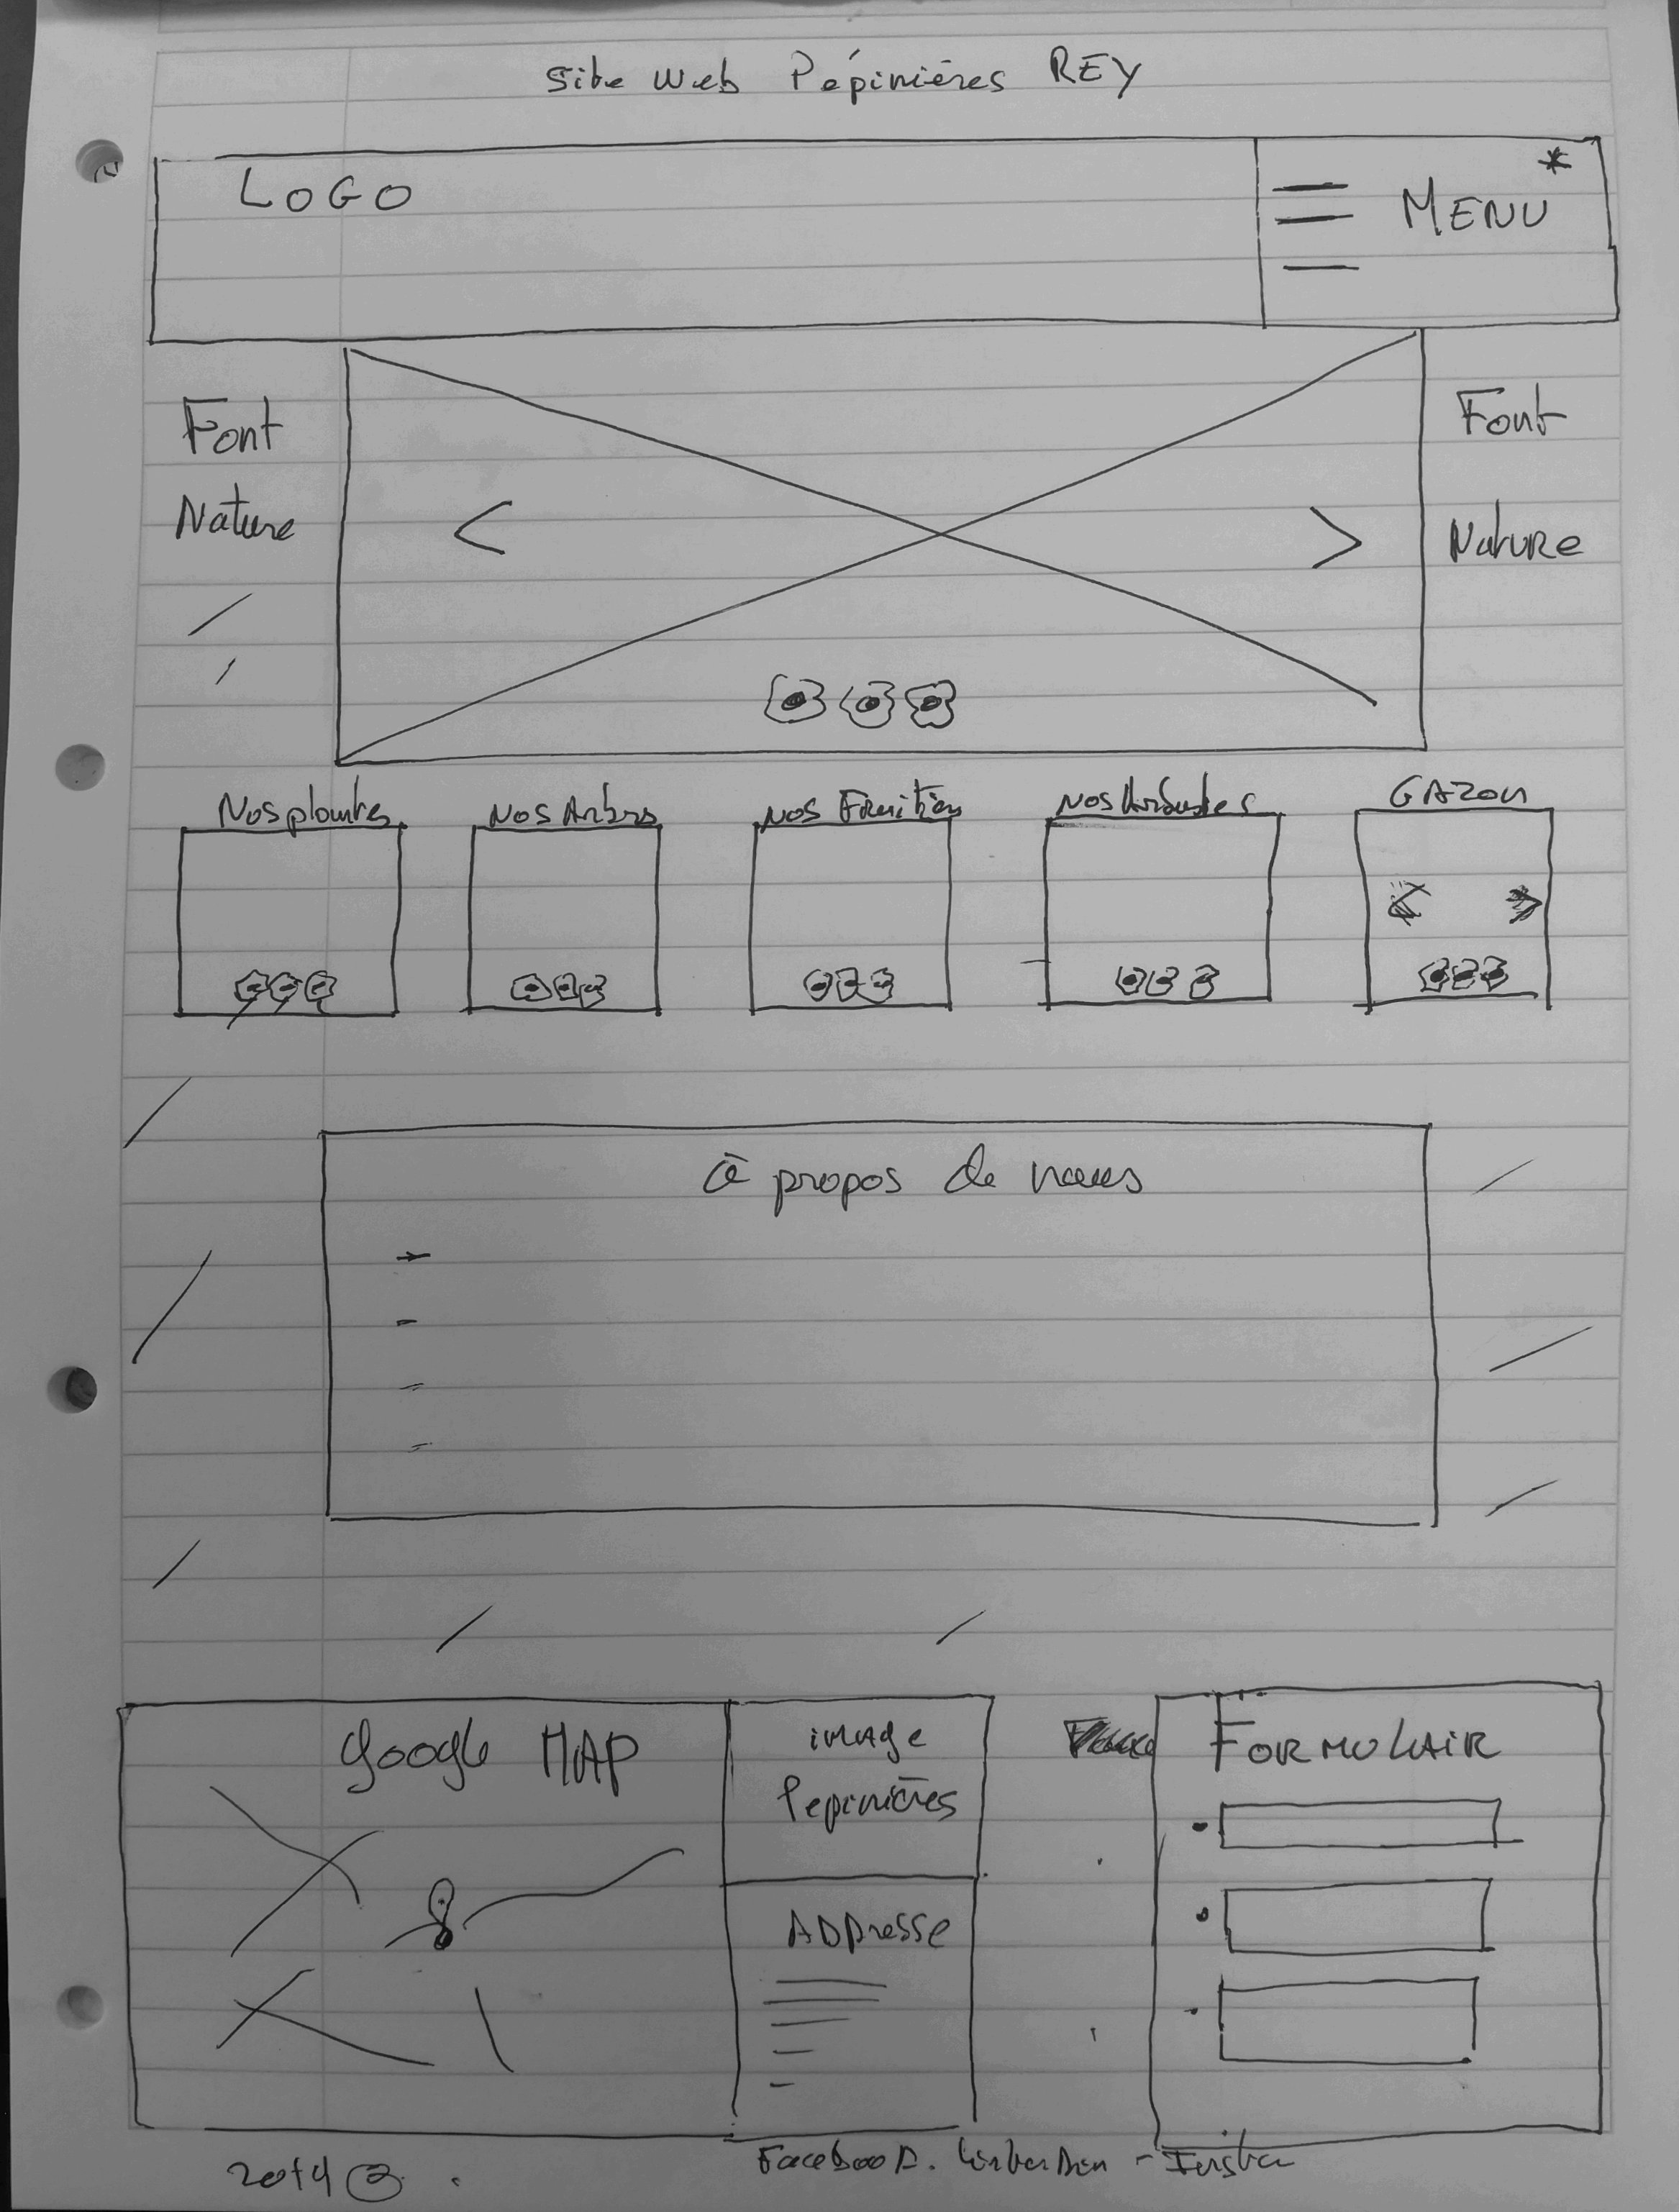 Site Web Pépinières REY
LOGO
MENU *
Font
Nature
Font
Nature
< >
Nos plantes
Nos Arbres
Nos Fruitiers
Nos Arbustes
GAZon
à propos de nous
Google MAP
image
Pepinières
ADDresse
FORMULAIR
2014
Facebook. - Insta